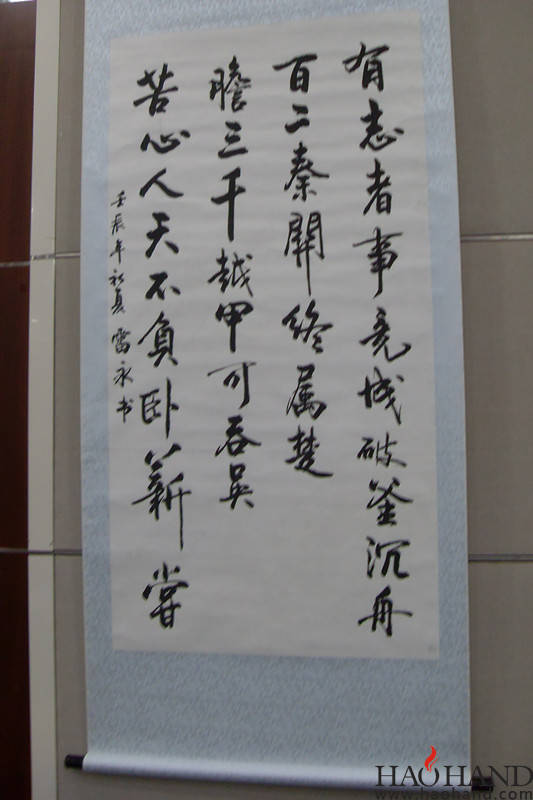 有志者事竟成破釜沉舟
百二秦關終属楚
苦心人天不負卧薪嘗
膽三千越甲可吞吴
壬辰年初夏雷永书
HAOHAND
www.haohand.com